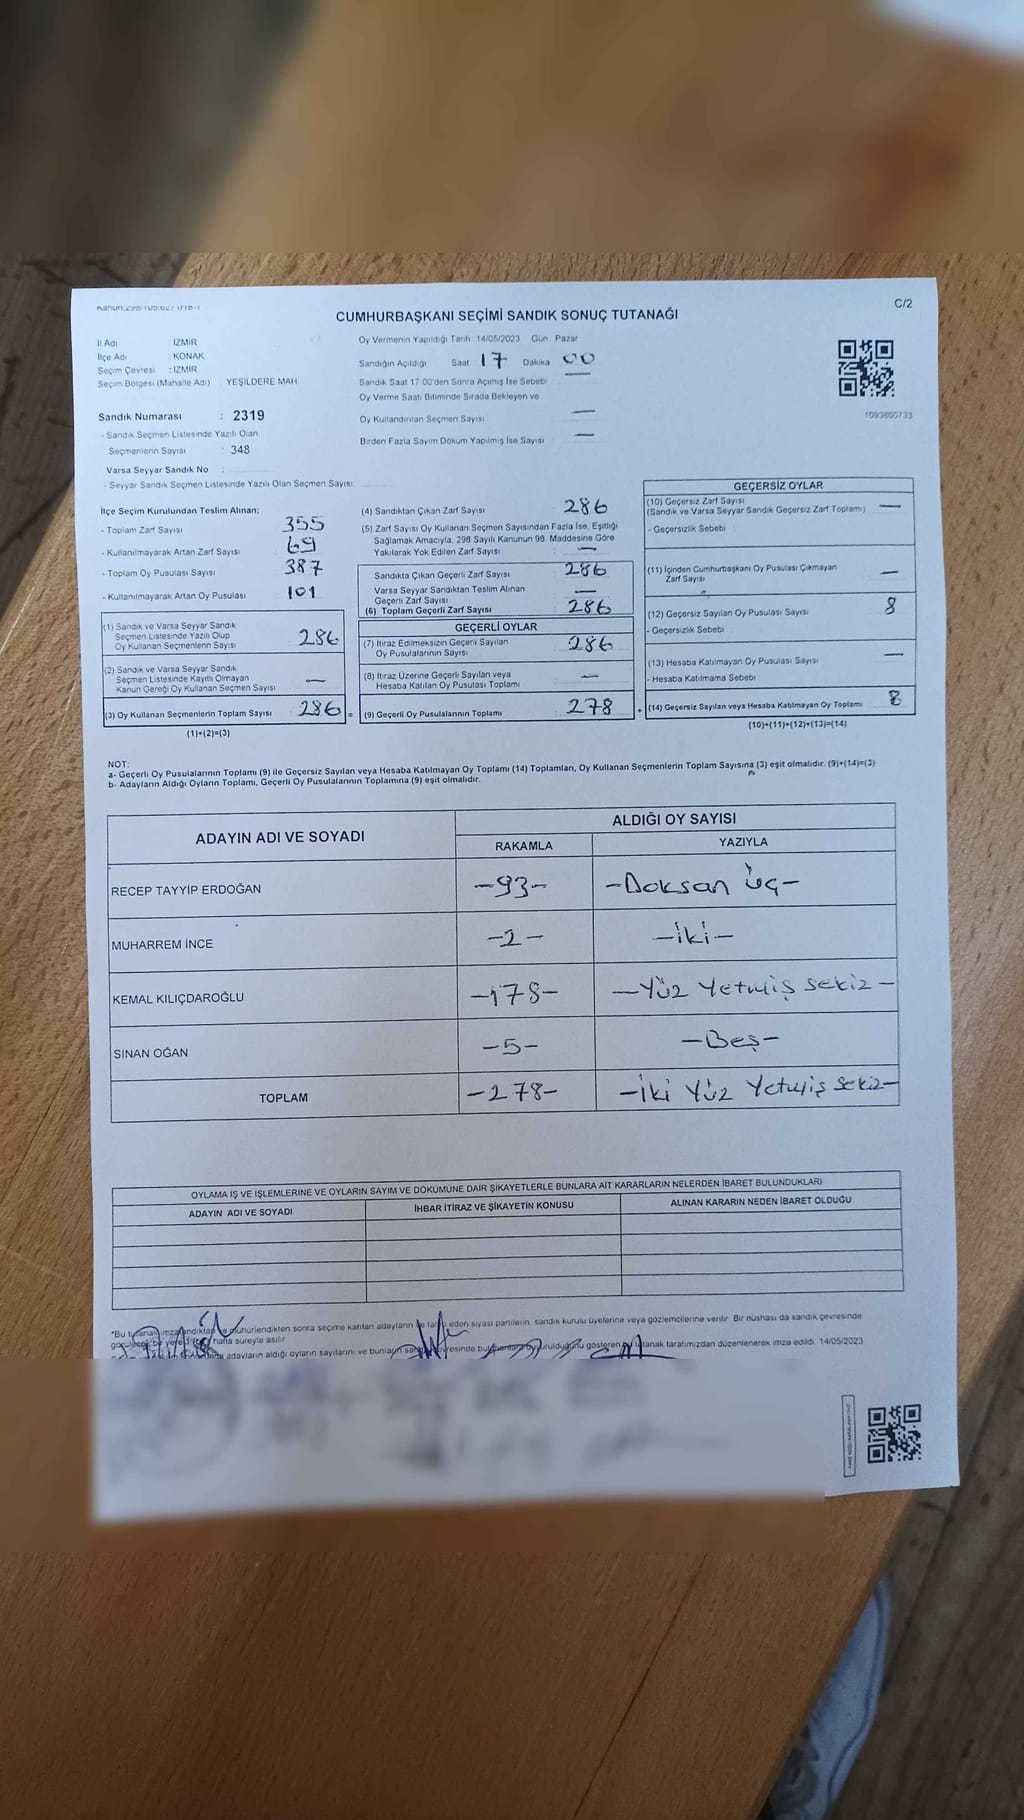 C/2
CUMHURBAŞKANI SEÇİMİ SANDIK SONUÇ TUTANAĞI
İl Adı : İZMİR
İlçe Adı : KONAK
Seçim Çevresi : İZMİR
Seçim Bölgesi (Mahalle Adı) : YEŞİLDERE MAH
Sandık Numarası : 2319
- Sandık Seçmen Listesinde Yazılı Olan
Seçmenlerin Sayısı : 348
Varsa Seyyar Sandık No :
- Seyyar Sandık Seçmen Listesinde Yazılı Olan Seçmen Sayısı
Oy Vermenin Yapıldığı Tarih 14/05/2023 Gün Pazar
Sandığın Açıldığı Saat 17 Dakika 00
Sandık Saat 17:00'den Sonra Açımış İse Sebebi
Oy Verme Saati Bitiminde Sırada Bekleyen ve
Oy Kullandırılan Seçmen Sayısı —
Birden Fazla Sayım Döküm Yapılmış İse Sayısı —
1093800733
İlçe Seçim Kurulundan Teslim Alınan;
- Toplam Zarf Sayısı 355
- Kullanılmayarak Artan Zarf Sayısı 69
- Toplam Oy Pusulası Sayısı 387
- Kullanılmayarak Artan Oy Pusulası 101
(1) Sandık ve Varsa Seyyar Sandık
Seçmen Listesinde Yazılı Olup
Oy Kullanan Seçmenlerin Sayısı 286
(2) Sandık ve Varsa Seyyar Sandık
Seçmen Listesinde Kayıtlı Olmayan
Kanun Gereği Oy Kullanan Seçmen Sayısı —
(3) Oy Kullanan Seçmenlerin Toplam Sayısı 286 =
(1)+(2)=(3)
(4) Sandıktan Çıkan Zarf Sayısı 286
(5) Zarf Sayısı Oy Kullanan Seçmen Sayısından Fazla İse, Eşitliği
Sağlamak Amacıyla, 298 Sayılı Kanunun 98. Maddesine Göre
Yakılarak Yok Edilen Zarf Sayısı —
Sandıkta Çıkan Geçerli Zarf Sayısı 286
Varsa Seyyar Sandıktan Teslim Alınan
Geçerli Zarf Sayısı —
(6) Toplam Geçerli Zarf Sayısı 286
GEÇERLİ OYLAR
(7) İtiraz Edilmeksizin Geçerli Sayılan
Oy Pusulalarının Sayısı 286
(8) İtiraz Üzerine Geçerli Sayılan veya
Hesaba Katılan Oy Pusulası Toplamı —
(9) Geçerli Oy Pusulalarının Toplamı 278 +
GEÇERSİZ OYLAR
(10) Geçersiz Zarf Sayısı
(Sandık ve Varsa Seyyar Sandık Geçersiz Zarf Toplamı) —
- Geçersizlik Sebebi :
(11) İçinden Cumhurbaşkanı Oy Pusulası Çıkmayan
Zarf Sayısı —
(12) Geçersiz Sayılan Oy Pusulası Sayısı 8
- Geçersizlik Sebebi
(13) Hesaba Katılmayan Oy Pusulası Sayısı —
- Hesaba Katılmama Sebebi
(14) Geçersiz Sayılan veya Hesaba Katılmayan Oy Toplamı 8
(10)+(11)+(12)+(13)=(14)
NOT:
a- Geçerli Oy Pusulalarının Toplamı (9) ile Geçersiz Sayılan veya Hesaba Katılmayan Oy Toplamı (14) Toplamları, Oy Kullanan Seçmenlerin Toplam Sayısına (3) eşit olmalıdır. (9)+(14)=(3)
b- Adayların Aldığı Oyların Toplamı, Geçerli Oy Pusulalarının Toplamına (9) eşit olmalıdır.
ADAYIN ADI VE SOYADI
ALDIĞI OY SAYISI
RAKAMLA YAZIYLA
RECEP TAYYİP ERDOĞAN -93- -Doksan Üç-
MUHARREM İNCE -2- -İki-
KEMAL KILIÇDAROĞLU -178- -Yüz Yetmiş Sekiz-
SİNAN OĞAN -5- -Beş-
TOPLAM -278- -İki Yüz Yetmiş Sekiz-
OYLAMA İŞ VE İŞLEMLERİNE VE OYLARIN SAYIM VE DÖKÜMÜNE DAİR ŞİKAYETLERLE BUNLARA AİT KARARLARIN NELERDEN İBARET BULUNDUKLARI
ADAYIN ADI VE SOYADI İHBAR İTİRAZ VE ŞİKAYETİN KONUSU ALINAN KARARIN NEDEN İBARET OLDUĞU
*Bu tutanak imzalandıktan ve mühürlendikten sonra seçime katılan adayların ve talep eden siyasi partilerin sandık kurulu üyelerine veya gözlemcilerine verilir. Bir nüshası da sandık çevresinde
hafta süreyle asılır.
adayların aldığı oyların sayılarını ve bunların gösteren tutanak tarafımızdan düzenlenerek imza edildi. 14/05/2023